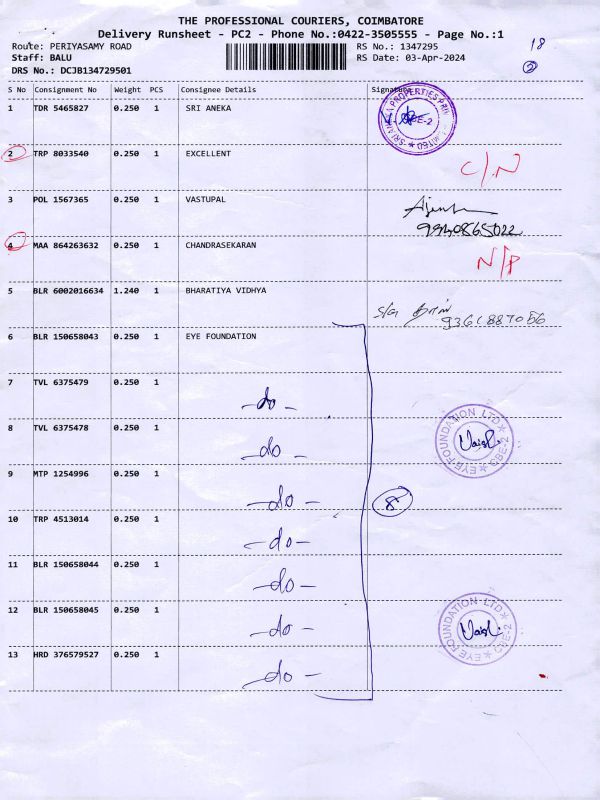 THE PROFESSIONAL COURIERS, COIMBATORE
Delivery Runsheet - PC2 - Phone No.:0422-3505555 - Page No.:1
Route: PERIYASAMY ROAD RS No.: 1347295 18
Staff: BALU RS Date: 03-Apr-2024 2
DRS No.: DCJB134729501
S No Consignment No Weight PCS Consignee Details Signature
1 TDR 5465827 0.250 1 SRI ANEKA
2 TRP 8033540 0.250 1 EXCELLENT C/N
3 POL 1567365 0.250 1 VASTUPAL
4 MAA 864263632 0.250 1 CHANDRASEKARAN N/P
5 BLR 6002016634 1.240 1 BHARATIYA VIDHYA
6 BLR 150658043 0.250 1 EYE FOUNDATION
7 TVL 6375479 0.250 1 -do-
8 TVL 6375478 0.250 1 -do EYE FOUNDATION LTD CBE-2
9 MTP 1254996 0.250 1 -do- 8
10 TRP 4513014 0.250 1 -do-
11 BLR 150658044 0.250 1 -do-
12 BLR 150658045 0.250 1 -do- EYE FOUNDATION LTD CBE-2
13 HRD 376579527 0.250 1 -do-